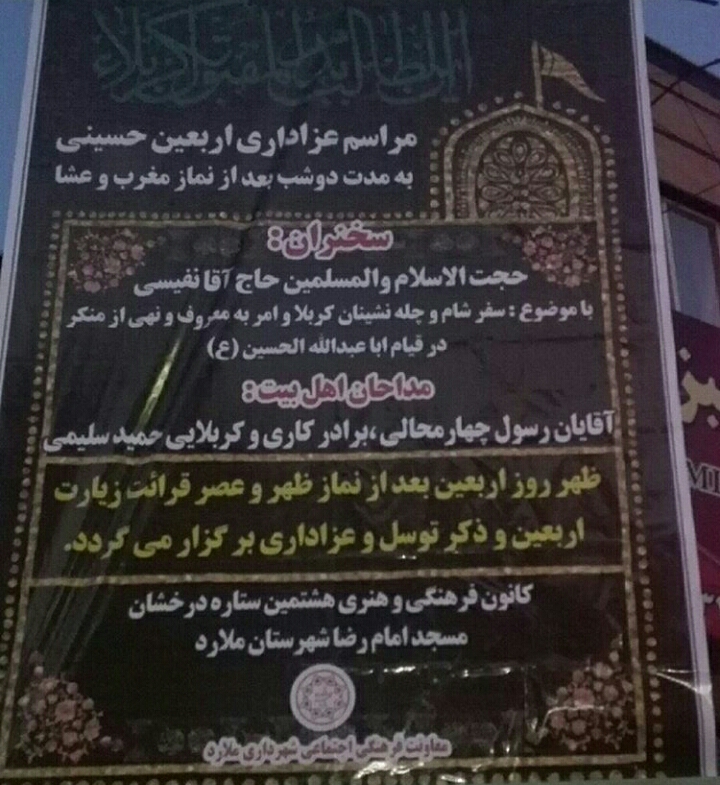 این الطالب بدم المقتول بکربلاء
مراسم عزاداری اربعین حسینی
به مدت دوشب بعد از نماز مغرب و عشا
سخنران:
حجت الاسلام والمسلمین حاج آقا نفیسی
با موضوع : سفر شام و چله نشینان کربلا و امر به معروف و نهی از منکر
در قیام ابا عبدالله الحسین (ع)
مداحان اهل بیت:
آقایان رسول چهارمحالی ،برادر کاری و کربلایی حمید سلیمی
ظهر روز اربعین بعد از نماز ظهر و عصر قرائت زیارت
اربعین و ذکر توسل و عزاداری برگزار می گردد.
کانون فرهنگی و هنری هشتمین ستاره درخشان
مسجد امام رضا شهرستان ملارد
معاونت فرهنگی اجتماعی شهرداری ملارد